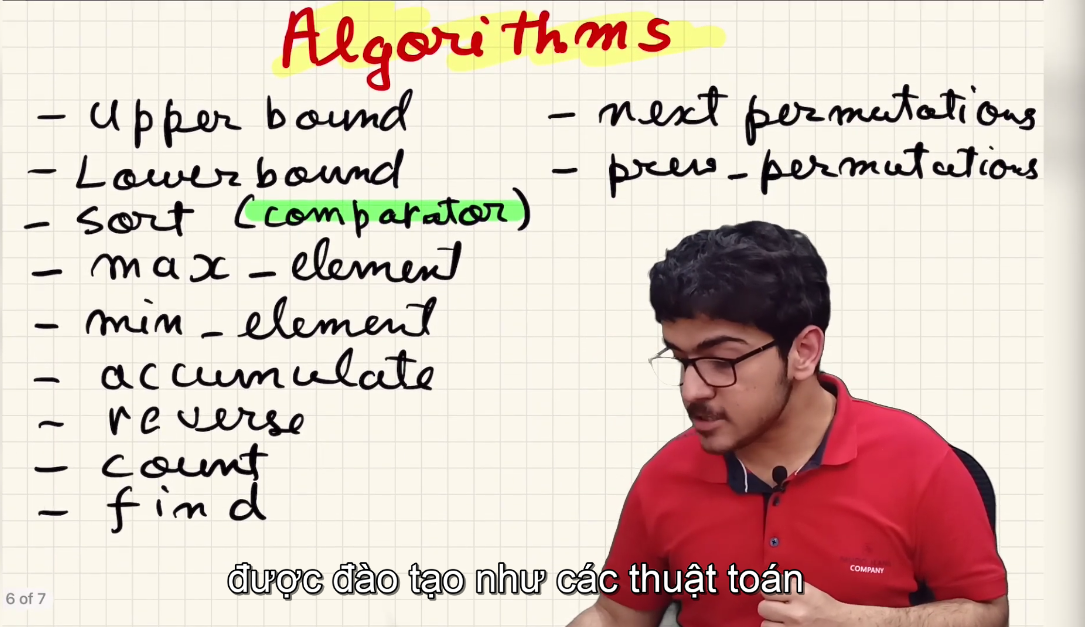 Algorithms
- upper bound
- Lower bound
- sort (comparator)
- max - element
- min - element
- accumulate
- reverse
- count
- find
- next permutations
- prev - permutations
COMPANY
được đào tạo như các thuật toán
6 of 7